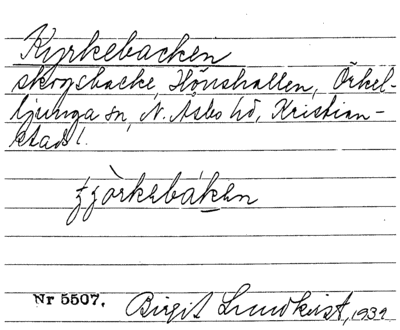 Kyrkebacken
skogsbacke, Hönshallen, Örkel-
ljunga sn, N. Åsbo hd, Kristian-
stads l.
Nr 5507.
Birgit Lundkvist, 1932